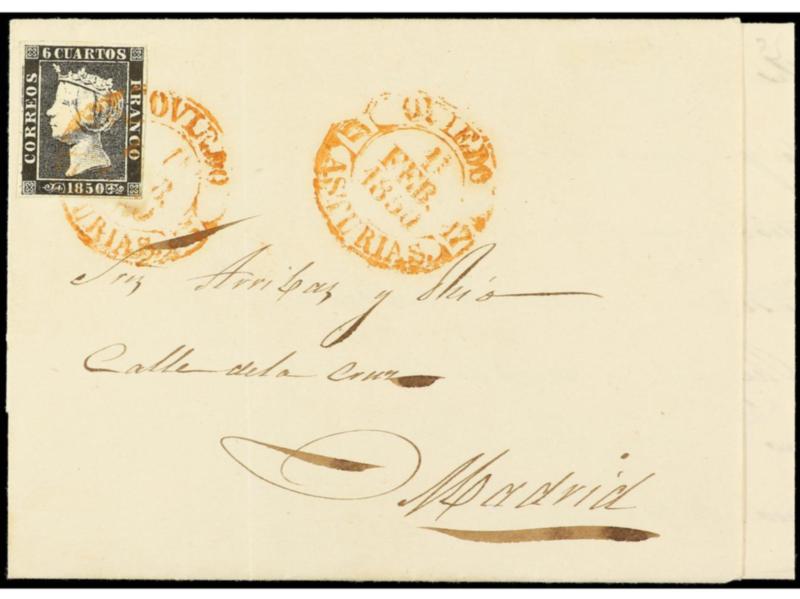 6 CUARTOS
CORREOS
FRANCO
1850
OVIEDO
OVIEDO
11
FEB.
1850
ASTURIAS.
Arribas y
Calle de la Cruz
Madrid